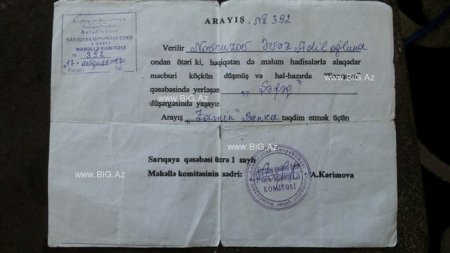 ARAYIŞ № 392
SARIQAYA QƏSƏBƏSİ ÜZRƏ
1 SAYLI
MƏHƏLLƏ KOMİTƏSİ
№ 392
Verilir Novruzov Əvəz Adil oğluna
ondan ötəri ki, həqiqətən də məlum hadisələrlə əlaqədar
məcburi köçkün düşmüş və hal-hazırda
qəsəbəsində yerləşən
düşərgəsində yaşayır.
Arayış "Zamin" Banka təqdim etmək üçün
Sarıqaya qəsəbəsi üzrə 1 saylı
Məhəllə komitəsinin sədri: A.Kərimova
KOMİTƏSİ
www.BiG.Az
www.BiG.Az
www.BiG.Az
www.BiG.Az
www.BiG.Az